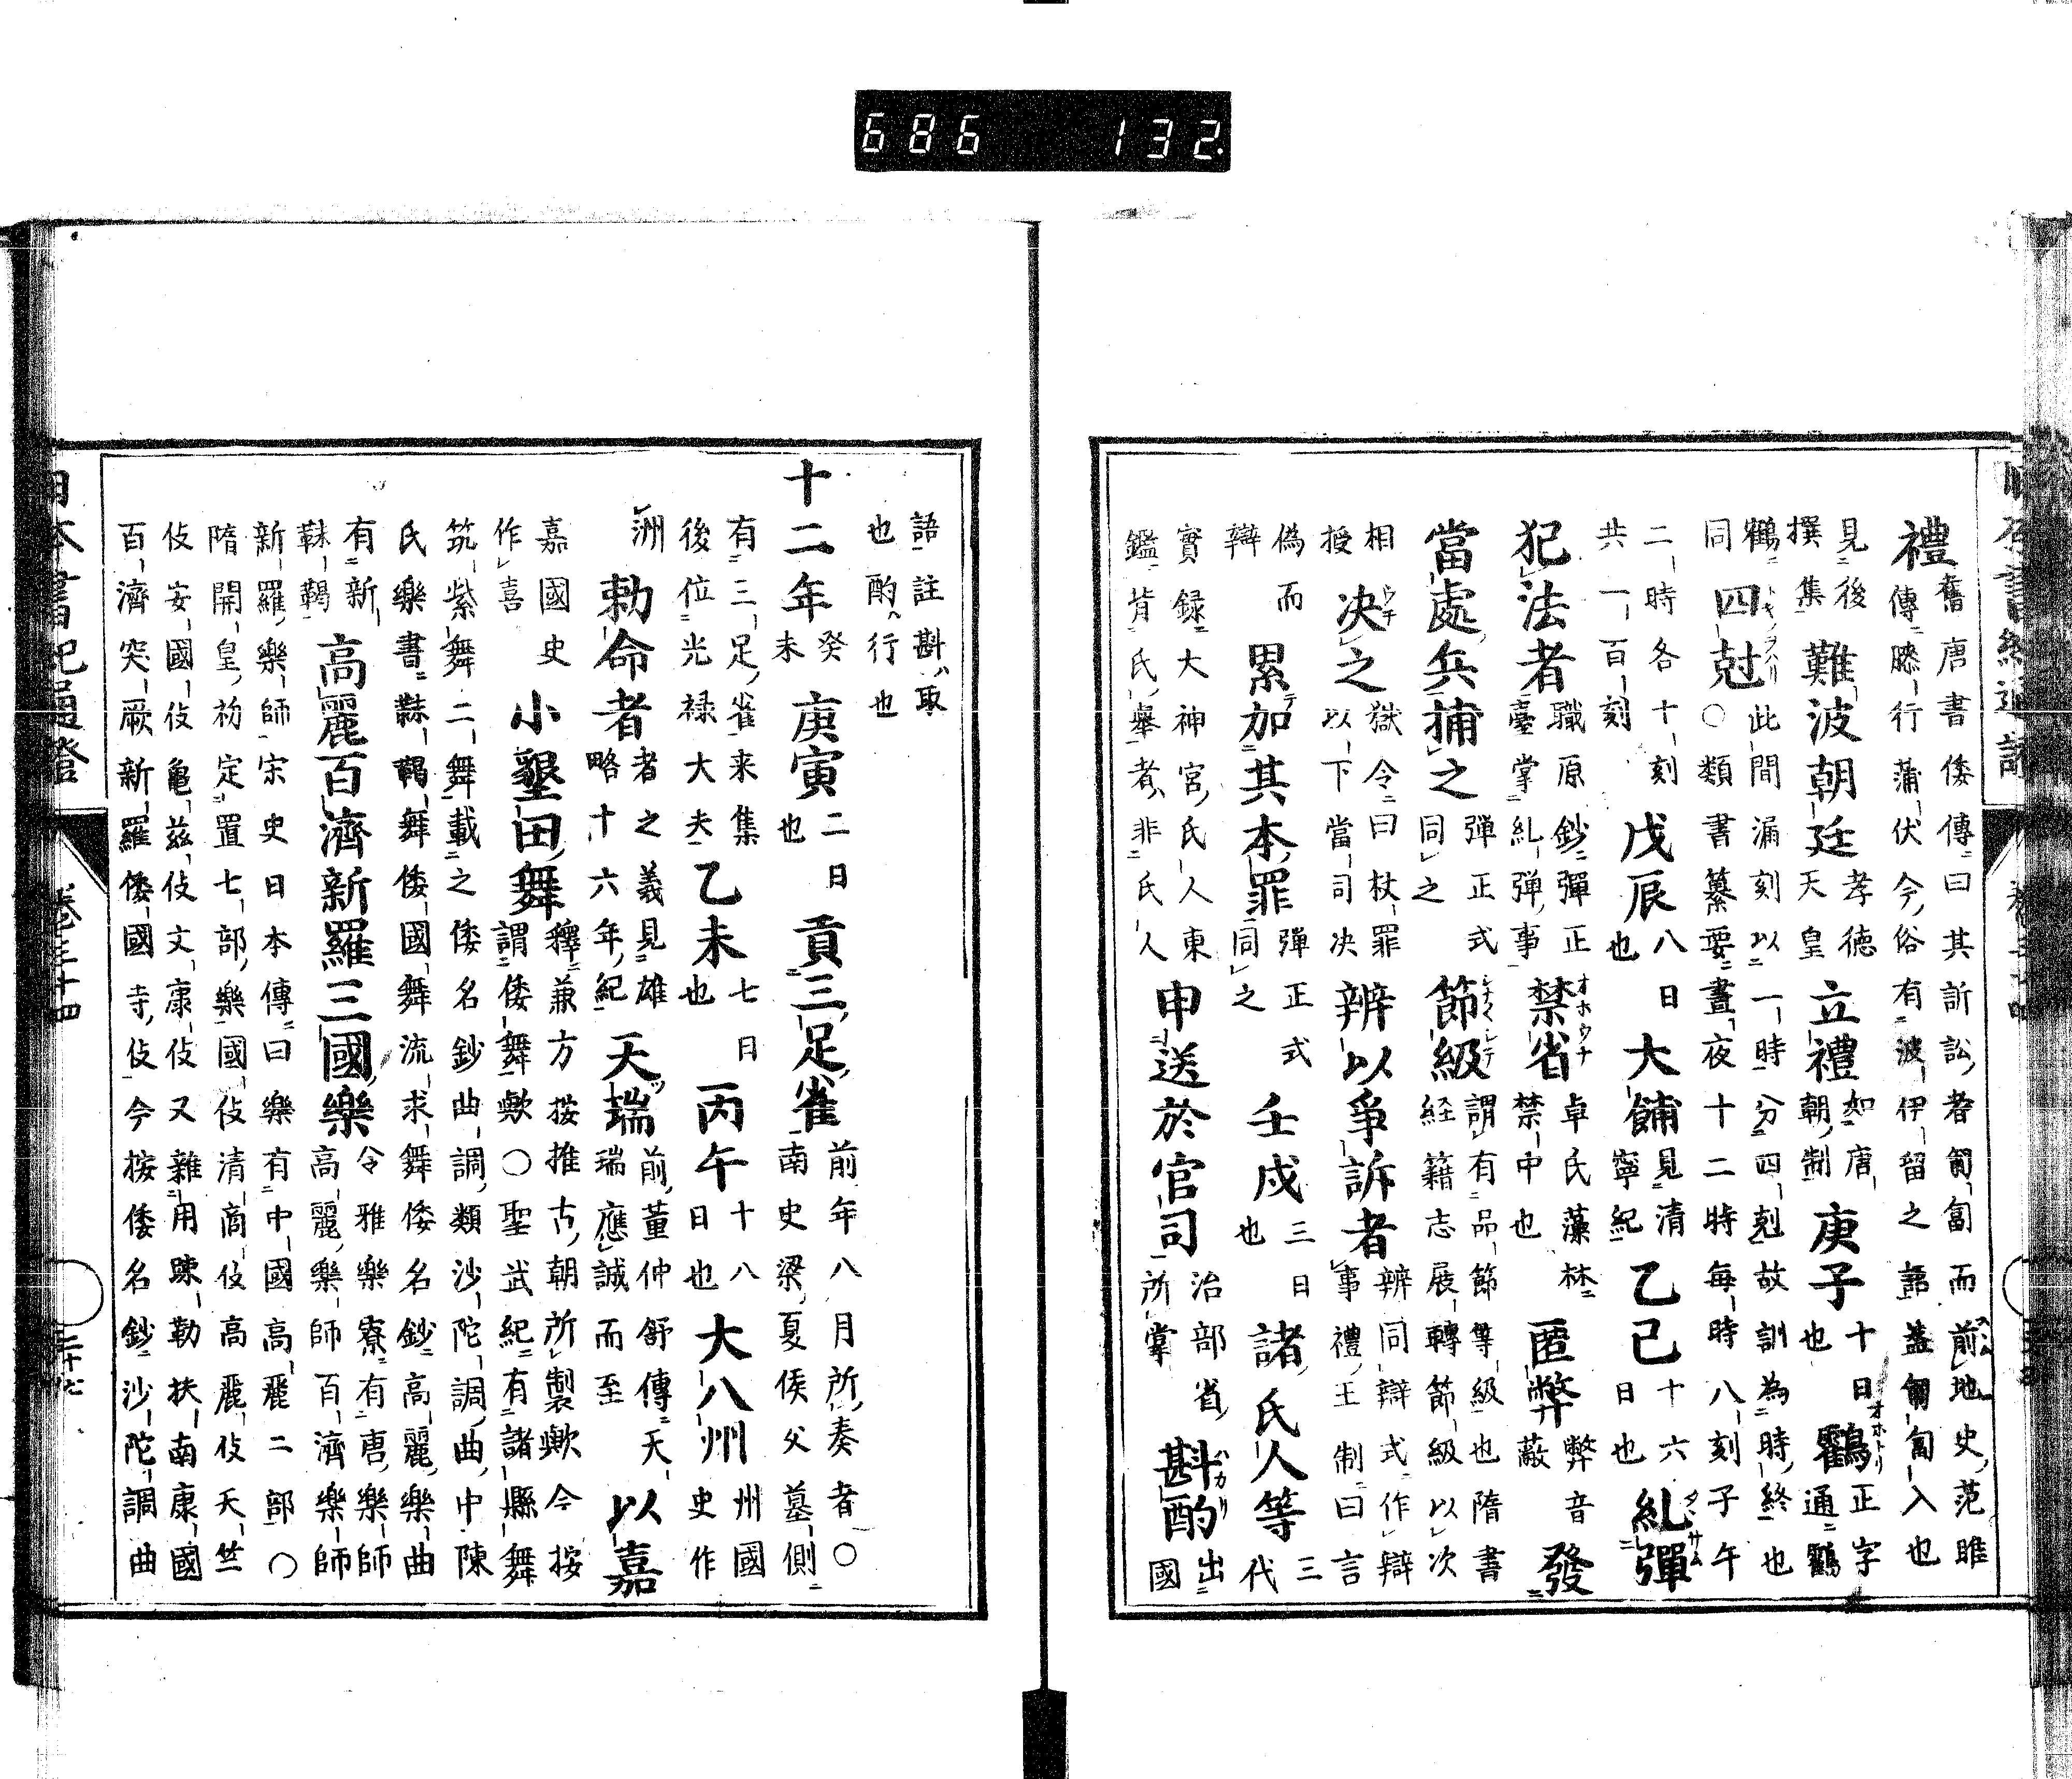 禮 舊唐書倭傳曰其訢訟者匍匐而前地史范雎傳膝行蒲伏今俗有波伊留之語蓋匍匐入也
見後撰集 難波朝廷 孝德天皇 立禮 如唐朝制 庚子 十日也 オホトリ 正字通鸖
鶴同 四尅 トキノヲハリ 此間漏刻以一時分四尅故訓為時終也○類書纂要晝夜十二時每時八刻子午
二時各十刻共一百刻 戊辰 八日也 大餔 見清寧紀 乙巳 十六日也 糺彈 タヽサム
犯法者 職原鈔彈正臺掌糺彈事 禁省 オホウチ 卓氏藻林禁中也 匿弊 弊音蔽 發
當處兵捕之 弾正式同之 節級 謂有品節等級也隋書経籍志展轉節級以次
相授 决之 ウチ 獄令曰杖罪以下當司决 辨以爭訴者 辨同辯式作辯事禮王制曰言
偽而辯 累加其本罪 彈正式同之 壬戌 三日也 諸氏人等 三代
實録大神宮氏人東鑑肯氏舉者非氏人 申送於官司 治部省所掌 斟酌 ハカリ 出國
語註斟取也酌行也
十二年 癸未 庚寅 二日也 貢三足雀 前年八月所奏者○南史梁夏侯父墓側
有三足雀来集後位光禄大夫 乙未 七日也 丙午 十八日也 大八州 州國史作
洲 勅命者 者之義見雄略十六年紀 天瑞 前董仲舒傳天瑞應誠而至 以嘉
嘉國史作喜 小墾田舞 釋兼方按推古朝所製歟今按謂倭舞歟○聖武紀有諸縣舞
筑紫舞二舞載之倭名鈔曲調類沙陀調曲中陳
氏樂書靺鞨舞倭國舞流求舞倭名鈔高麗樂曲
有新靺鞨 高麗百濟新羅三國樂 令雅樂寮有唐樂師高麗樂師百濟樂師
新羅樂師宋史日本傳曰樂有中國高麗二部○
隋開皇初定置七部樂國伎清商伎高麗伎天竺
伎安國伎龜茲伎文康伎又雜用踈勒扶南康國
百濟突厥新羅倭國寺伎今按倭名鈔沙陀調曲
日本書紀通證 卷三十四
686 132